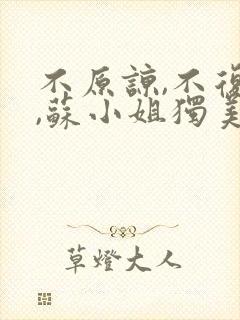 不原諒,不復
,蘇小姐獨美
草燈大人